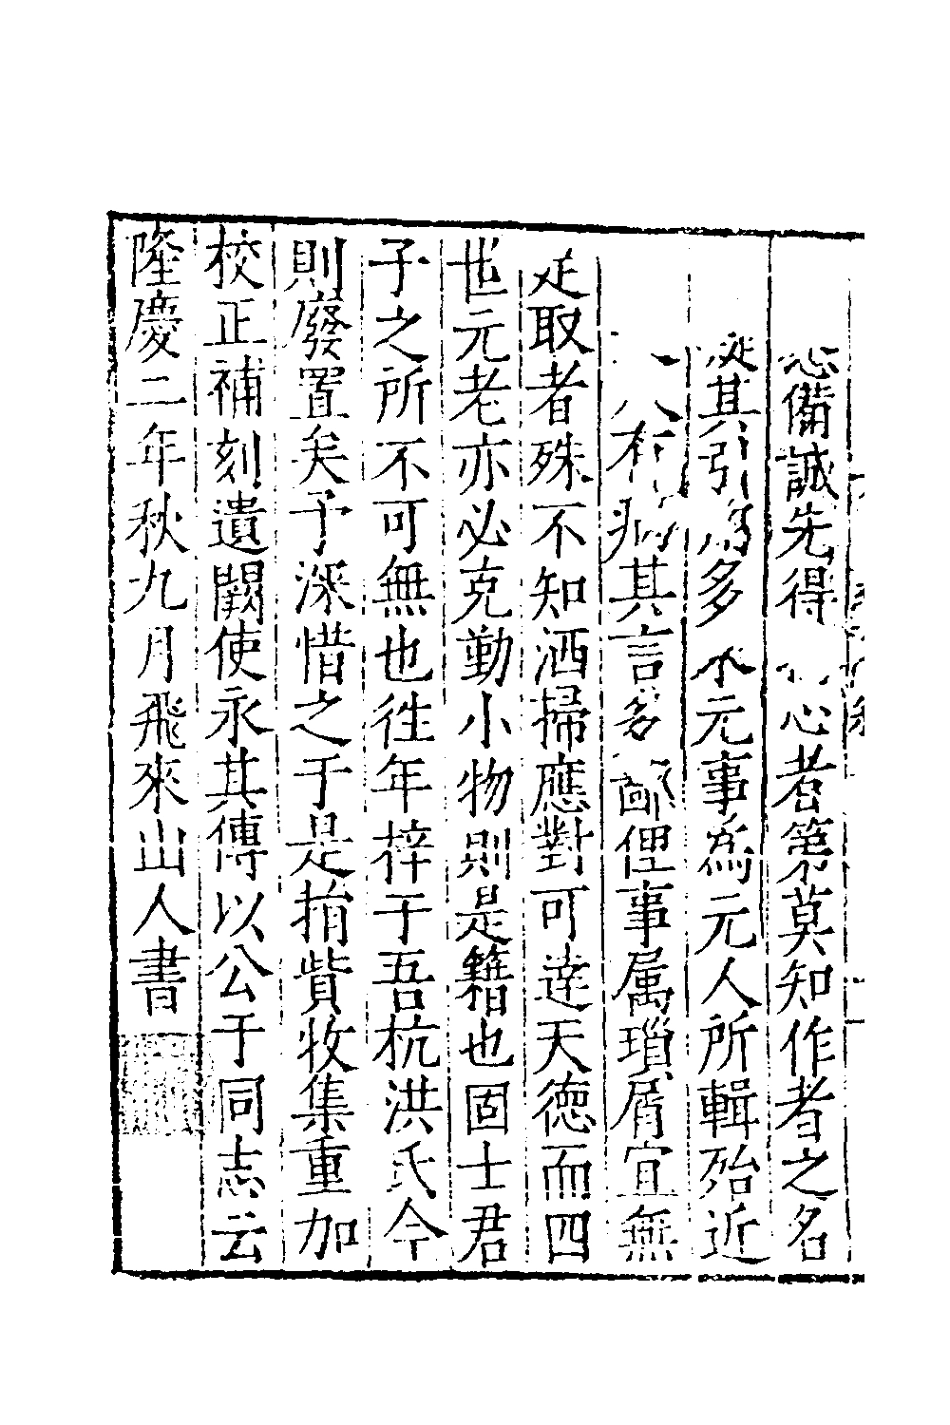 悉備誠先得 心者第莫知作者之名
從其引爲多 元事為元人所輯殆近
人 有 其言多鄙俚事属瑣屑宜無
足取者殊不知洒掃應對可達天德而四
也元老亦必克勤小物則是籍也固士君
子之所不可無也徃年梓于吾杭洪氏今
則廢置矣予深惜之于是捐貲收集重加
校正補刻遺闕使永其傳以公于同志云
隆慶二年秋九月飛來山人書